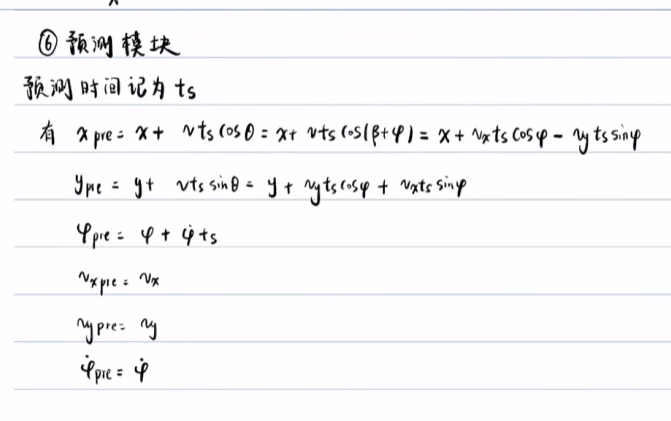 ⑥ 预测模块
预测时间记为 ts
有 x pre = x + vts cosθ = x + vts cos(β+φ) = x + vxts cosφ - vy ts sinφ
ypre = y + vts sinθ = y + vyts cosφ + vxts sinφ
φpre = φ + φ̇ ts
vxpre = vx
vypre = vy
φ̇pre = φ̇